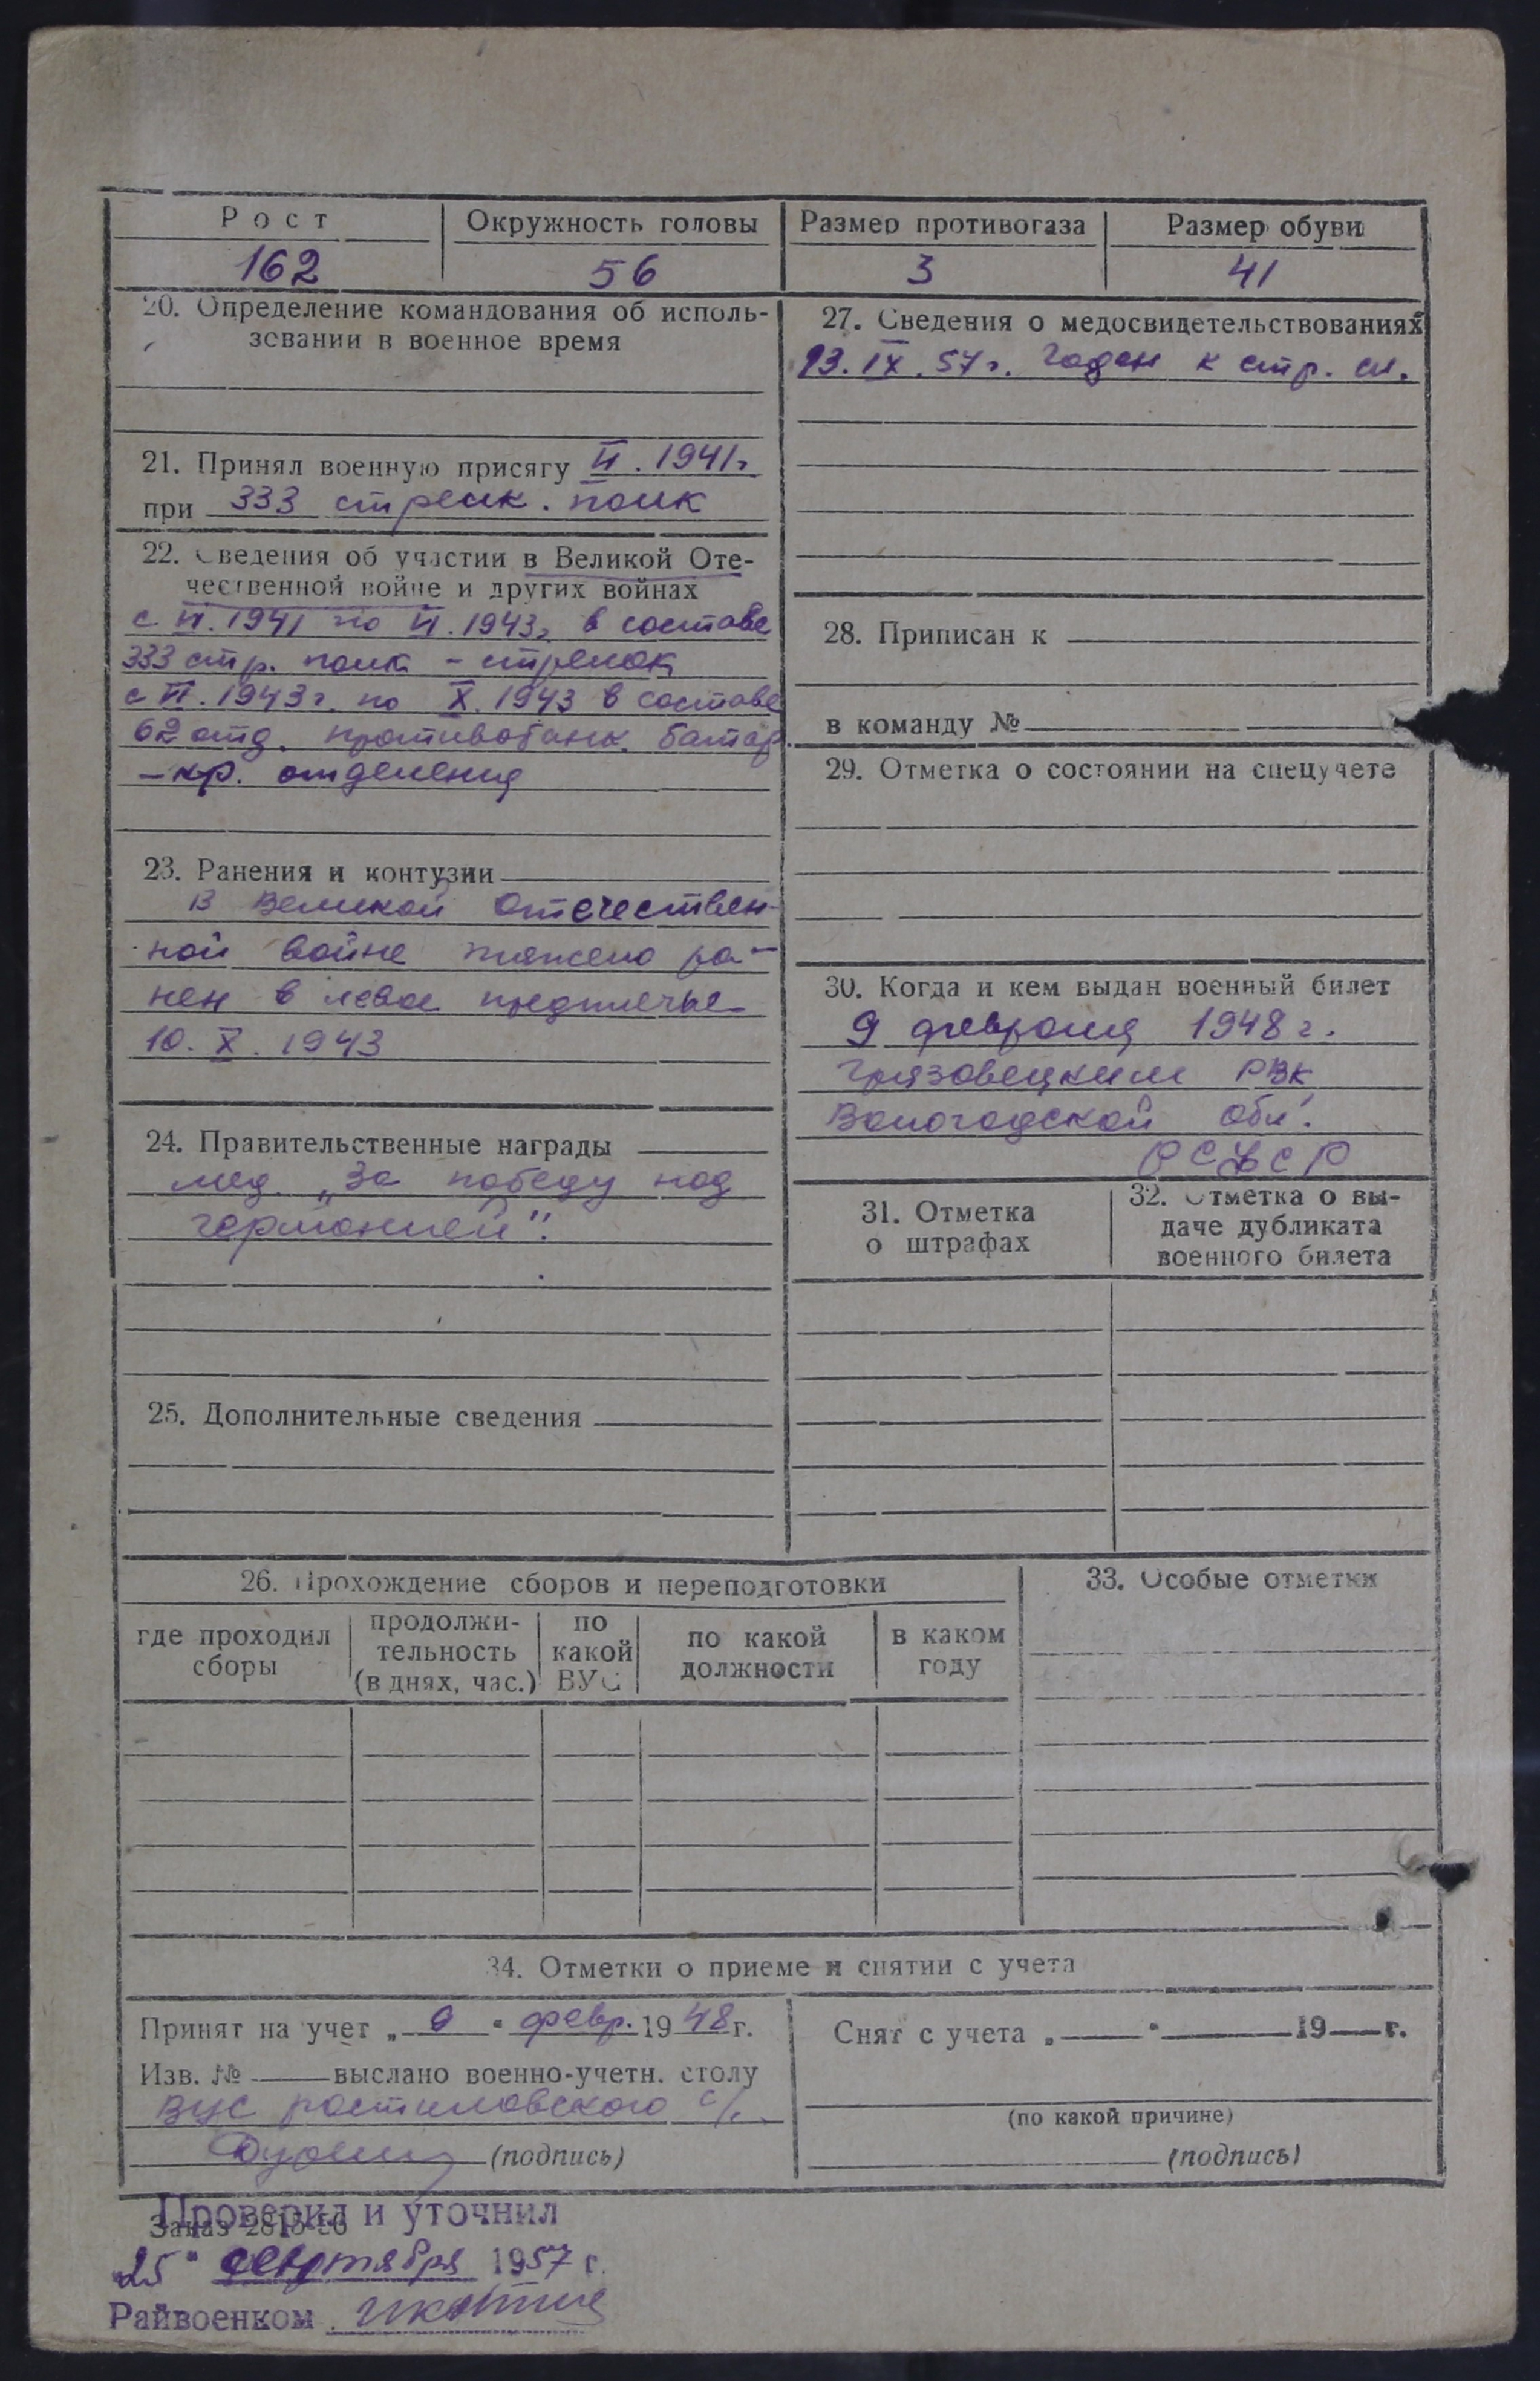 Рост
Окружность головы
Размер противогаза
Размер обуви
162
56
3
41
20. Определение командования об исполь-
зовании в военное время
21. Принял военную присягу VI. 1941г
при 333 стрелк. полк
22. Сведения об участии в Великой Оте-
чественной войне и других войнах
с VI. 1941 по VI. 1943г в составе
333 стр. полка - стрелок
с VI. 1943г. по X. 1943 в составе
62 отд. противотанк. батар
- кр. отделения
23. Ранения и контузии
В Великой Отечествен-
ной войне тяжело ра-
нен в левое предплечье
10. X. 1943
24. Правительственные награды
мед. „За победу над
Германией".
25. Дополнительные сведения
27. Сведения о медосвидетельствованиях
13. IX. 57г. Годен к стр. сл.
28. Приписан к
в команду №
29. Отметка о состоянии на спецучете
30. Когда и кем выдан военный билет
9 февраля 1948 г.
Грязовецким РВК
Вологодской обл.
РСФСР
31. Отметка
о штрафах
32. Отметка о вы-
даче дубликата
военного билета
26. Прохождение сборов и переподготовки
где проходил
сборы
продолжи-
тельность
(в днях, час.)
по
какой
ВУС
по какой
должности
в каком
году
33. Особые отметки
34. Отметки о приеме и снятии с учета
Принят на учет „ 9 " февр. 1948 г.
Изв. № выслано военно-учетн. столу
ВУС Ростиловского с/с
(подпись)
Снят с учета „ " 19 г.
(по какой причине)
(подпись)
Проверил и уточнил
Заказ
„25" сентября 1957 г.
Райвоенком